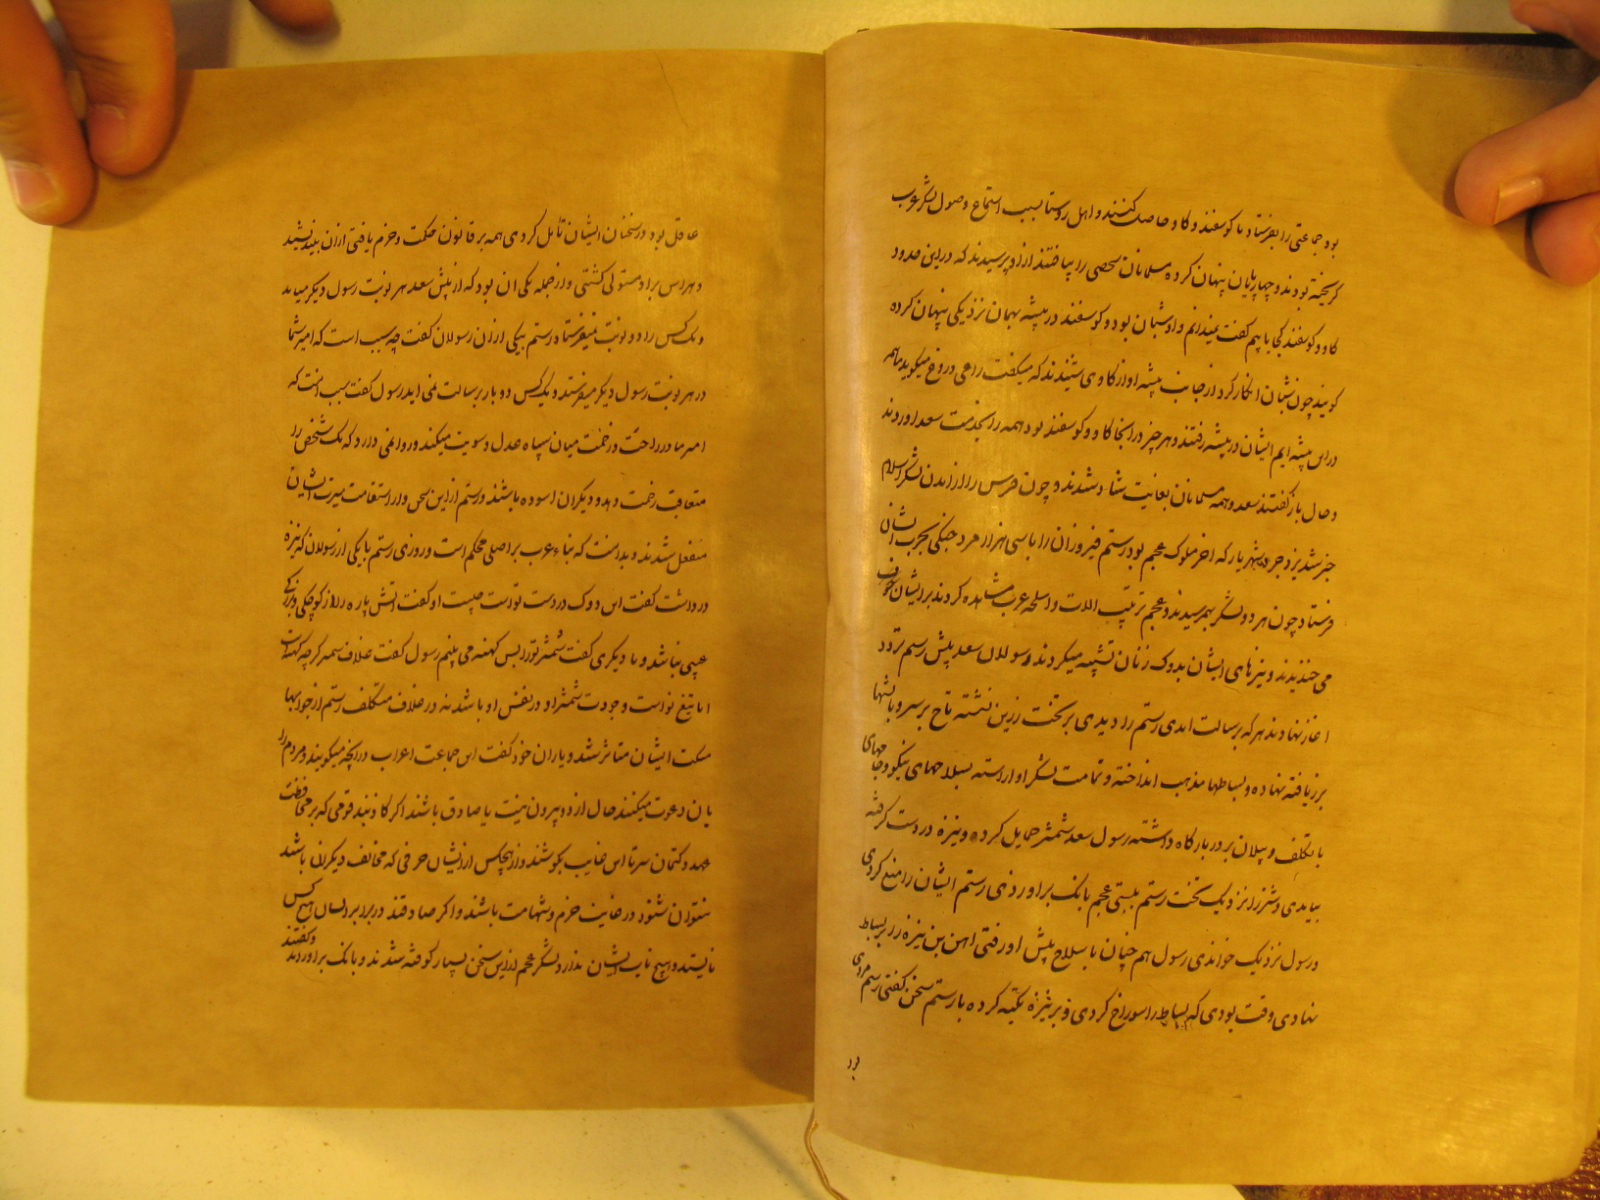 بود جماعتی را بفرستاد تا کوسفند و کاو حاصل کنند و اهل روستا بسبب استماع وصول لشکر عرب
کریخته بودند و چهارپایان پنهان کرده مسلمانان شخصی را بیافتند از او پرسیدند که در این حدود
کاو و کوسفند کجا یابیم کفت نمیدانم و او شبان بود و کوسفند در بیشه بهمان نزدیکی پنهان کرده
کویند چون شبان انکار کرد از جانب بیشه اواز کاوی شنیدند که میکفت راعی دروغ میکوید ما همه
در این بیشه ایم ایشان در بیشه رفتند و هر چیز در انجا کاو و کوسفند بود همه را بخدمت سعد اوردند
و حال باز کفتند سعد و همه مسلمانان بغایت شاد شدند و چون فرس را از امدن لشکر اسلام
خبر شد یزدجرد شهریار که اخر ملوک عجم بود رستم فیروزان را با سی هزار مرد جنکی بحرب ایشان
فرستاد چون هر دو لشکر بهم رسیدند و عجم ترتیب الات و اسلحه عرب مشاهده کردند بر ایشان
می خندیدند و نیزهای ایشان بدوک زنان تشبیه میکردند و رسولان سعد پیش رستم تردد
اغاز نهادند هر که برسالت امدی رستم را دیدی بر تخت زرین نشسته تاج بر سر و بالشها
زربافته نهاده و بساطها مذهب انداخته و تمامت لشکر او اراسته بسلاحهای نیکو و جامهای
با تکلف و پیلان بر در بارکاه داشته رسول سعد شمشیر حمایل کرده و نیزه در دست کرفته
بیامدی و شتر را نزدیک تخت رستم ببستی عجم بانک براوردندی رستم ایشان را منع کردی
و رسول نزدیک خواندی رسول هم چنان با سلاح پیش او رفتی اهن بن نیزه را بر بساط
نهادی وقت بودی که بساط را سوراخ کردی و بر نیزه تکیه کرده با رستم سخن کفتی رستم مردی
بود
عاقل بود در سخنان ایشان تأمل کردی همه بر قانون حکمت و حزم یافتی از ان بیندیشید
و هراس بر او مستولی کشتی و از جمله یکی ان بود که از پیش سعد هر نوبت رسول دیکر میامد
و یک کس را دو نوبت نمیفرستاد رستم بیکی از ان رسولان کفت چه سبب است که امیر شما
در هر نوبت رسول دیکر میفرستد و یک کس دو بار برسالت نمی اید رسول کفت سبب انست که
امیر ما در راحت و زحمت میان سپاه عدل و سویت میکند و روا نمی دارد که یک شخص را
متعاقب زحمت دهد و دیکران اسوده باشند رستم از این سخن و از استقامت سیرت ایشان
منفعل شدند و بدانست که بناء عرب بر اصلی محکم است و روزی رستم با یکی از رسولان که نیزه
در دست داشت کفت این دوک در دست تو است چیست او کفت اتش پاره را از کوچکی و بزرکی
عیبی نباشد و با دیکری کفت شمشیر تو را بس کهنه می بینم رسول کفت غلاف شمشیر کرچه کهنه است
اما تیغ نو است و جودت شمشیر او در نفس او باشد نه در غلاف متکلف رستم از جوابهای
مسکت ایشان متاثر شد و یاران خود کفت این جماعت اعراب درانچه میکویند و مردم را
بان دعوت میکنند حال از دو بیرون نیست یا صادق باشند اکر کاذبند قومی که بر محافظت
عهد و کتمان سر تا این غایت بکوشند و از هیچکس از ایشان حرفی که مخالف دیکران باشد
نتوان شنود در غایت حزم و شهامت باشند و اکر صادقند در برابر ایشان هیچ کس
نایستد و هیچ تاب ایشان ندارد لشکر عجم از این سخن بسیار کوفته شدند و بانک براوردند
و کفتند